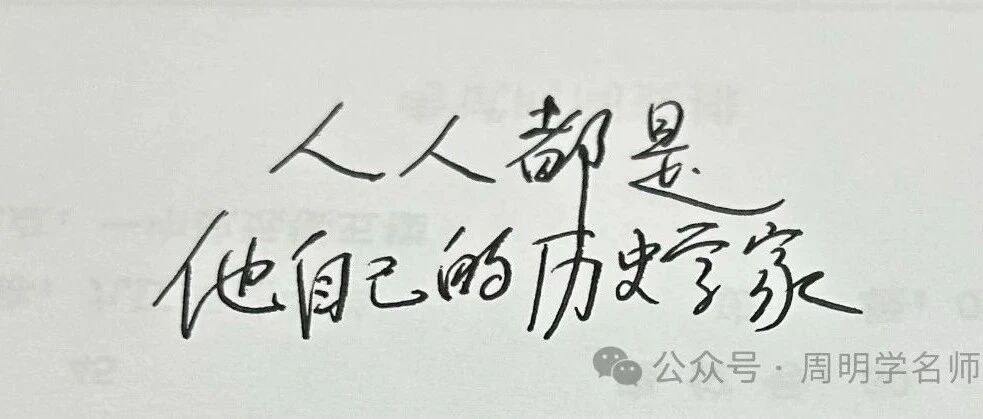 人人都是
他自己的历史学家
公众号·周明学名师